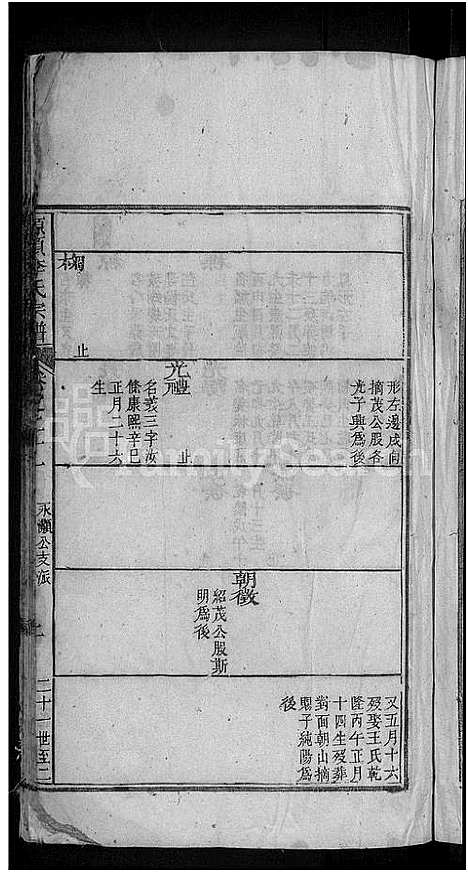 形左邊戌向
摘茂公股各
光子與爲後
止
光
名義三字汝
條康熙辛巳
正月二十六
生
止
朝徵
紹茂公股斯
明爲後
又五月十六
歿娶王氏乾
隆丙午正月
十四生歿葬
對面朝山摘
賜子純陽爲
後
李氏宗譜
永顯公支派
二十一世至二